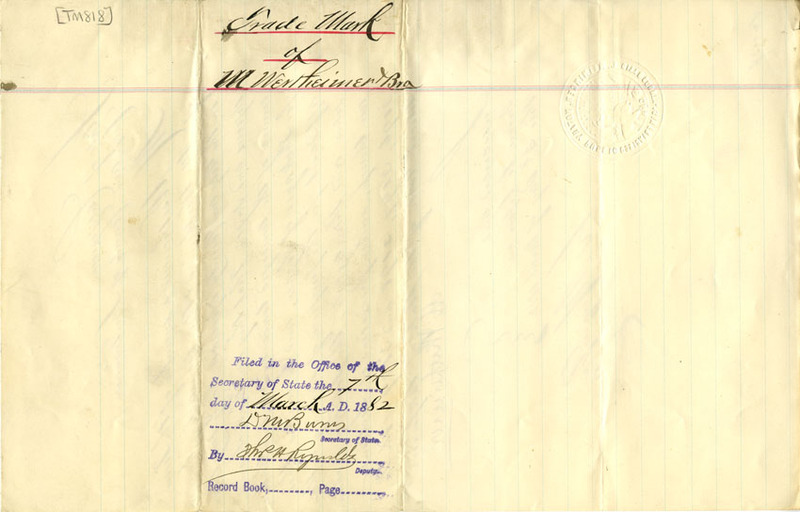 [TM818]
Trade Mark
of
M Wertheimer & Bro
Filed in the Office of the
Secretary of State the 7th
day of March A. D. 1882
D M Burns
Secretary of State.
By Thos H Reynolds
Deputy.
Record Book, Page